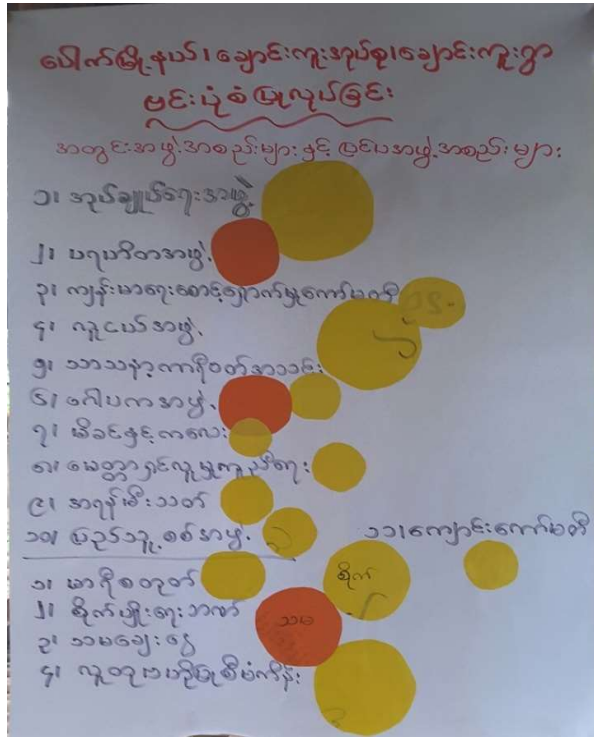 ပေါက်မြို့နယ်၊ ချောင်းကူးအုပ်စု၊ ချောင်းကူးရွာ
ဗင်းပုံစံပြုလုပ်ခြင်း
အတွင်းအဖွဲ့အစည်းများ နှင့် ပြင်ပအဖွဲ့အစည်းများ
၁၊ အုပ်ချုပ်ရေးအဖွဲ့
၂၊ ပရဟိတအဖွဲ့
၃၊ ကျန်းမာရေးစောင့်ရှောက်မှုကော်မတီ
၄၊ လူငယ်အဖွဲ့
၅၊ သာသနာ့ အသင်း
၆၊ ဂေါပကအဖွဲ့
၇၊ မိခင်နှင့်ကလေး
၈၊ မေတ္တာရှင်လူမှုကူညီရေး
၉၊ အရန်မီးသတ်
၁၀၊ ပြည်သူ့စစ်အဖွဲ့
၁၁၊ ကျောင်းကော်မတီ
၁၊ မာရီစတုတ်
စိုက်
၂၊ စိုက်ပျိုးရေးဘဏ်
သမ
၃၊ သမချေးငွေ
၄၊ လူထုဗဟိုပြုစီမံကိန်း